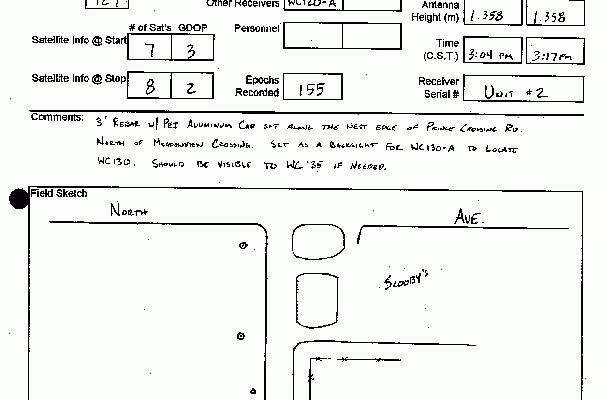 127 Other Receivers WC120-A Antenna Height (m) 1.358 1.358
# of Sat's GDOP Personnel
Satellite Info @ Start 7 3 Time (C.S.T.) 3:04 PM 3:17 PM
Satellite Info @ Stop 8 2 Epochs Recorded 155 Receiver Serial # UNIT #2
Comments: 3' REBAR W/ PEI ALUMINUM CAP SET ALONG THE WEST EDGE OF PRINCE CROSSING RD.
NORTH OF MEADOWVIEW CROSSING. SET AS A BACKSIGHT FOR WC130-A TO LOCATE
WC130. SHOULD BE VISIBLE TO WC '35 IF NEEDED.
Field Sketch
NORTH AVE.